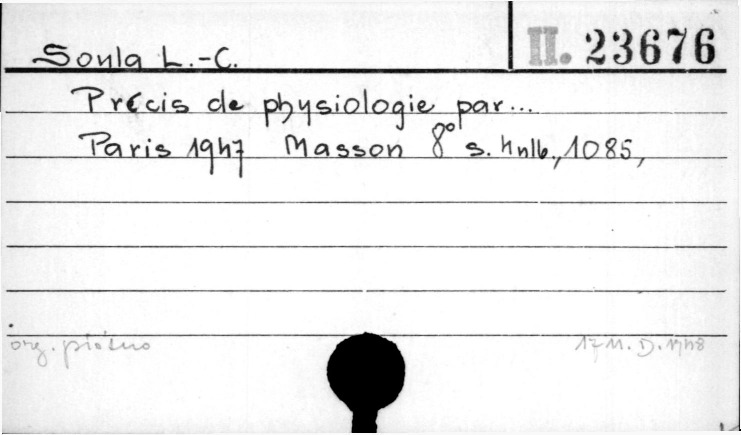 Soula L.-C.
II. 23676
Précis de physiologie par...
Paris 1947 Masson 8° s. 4nlb., 1085,
org. płótno
17 11. D. 1948